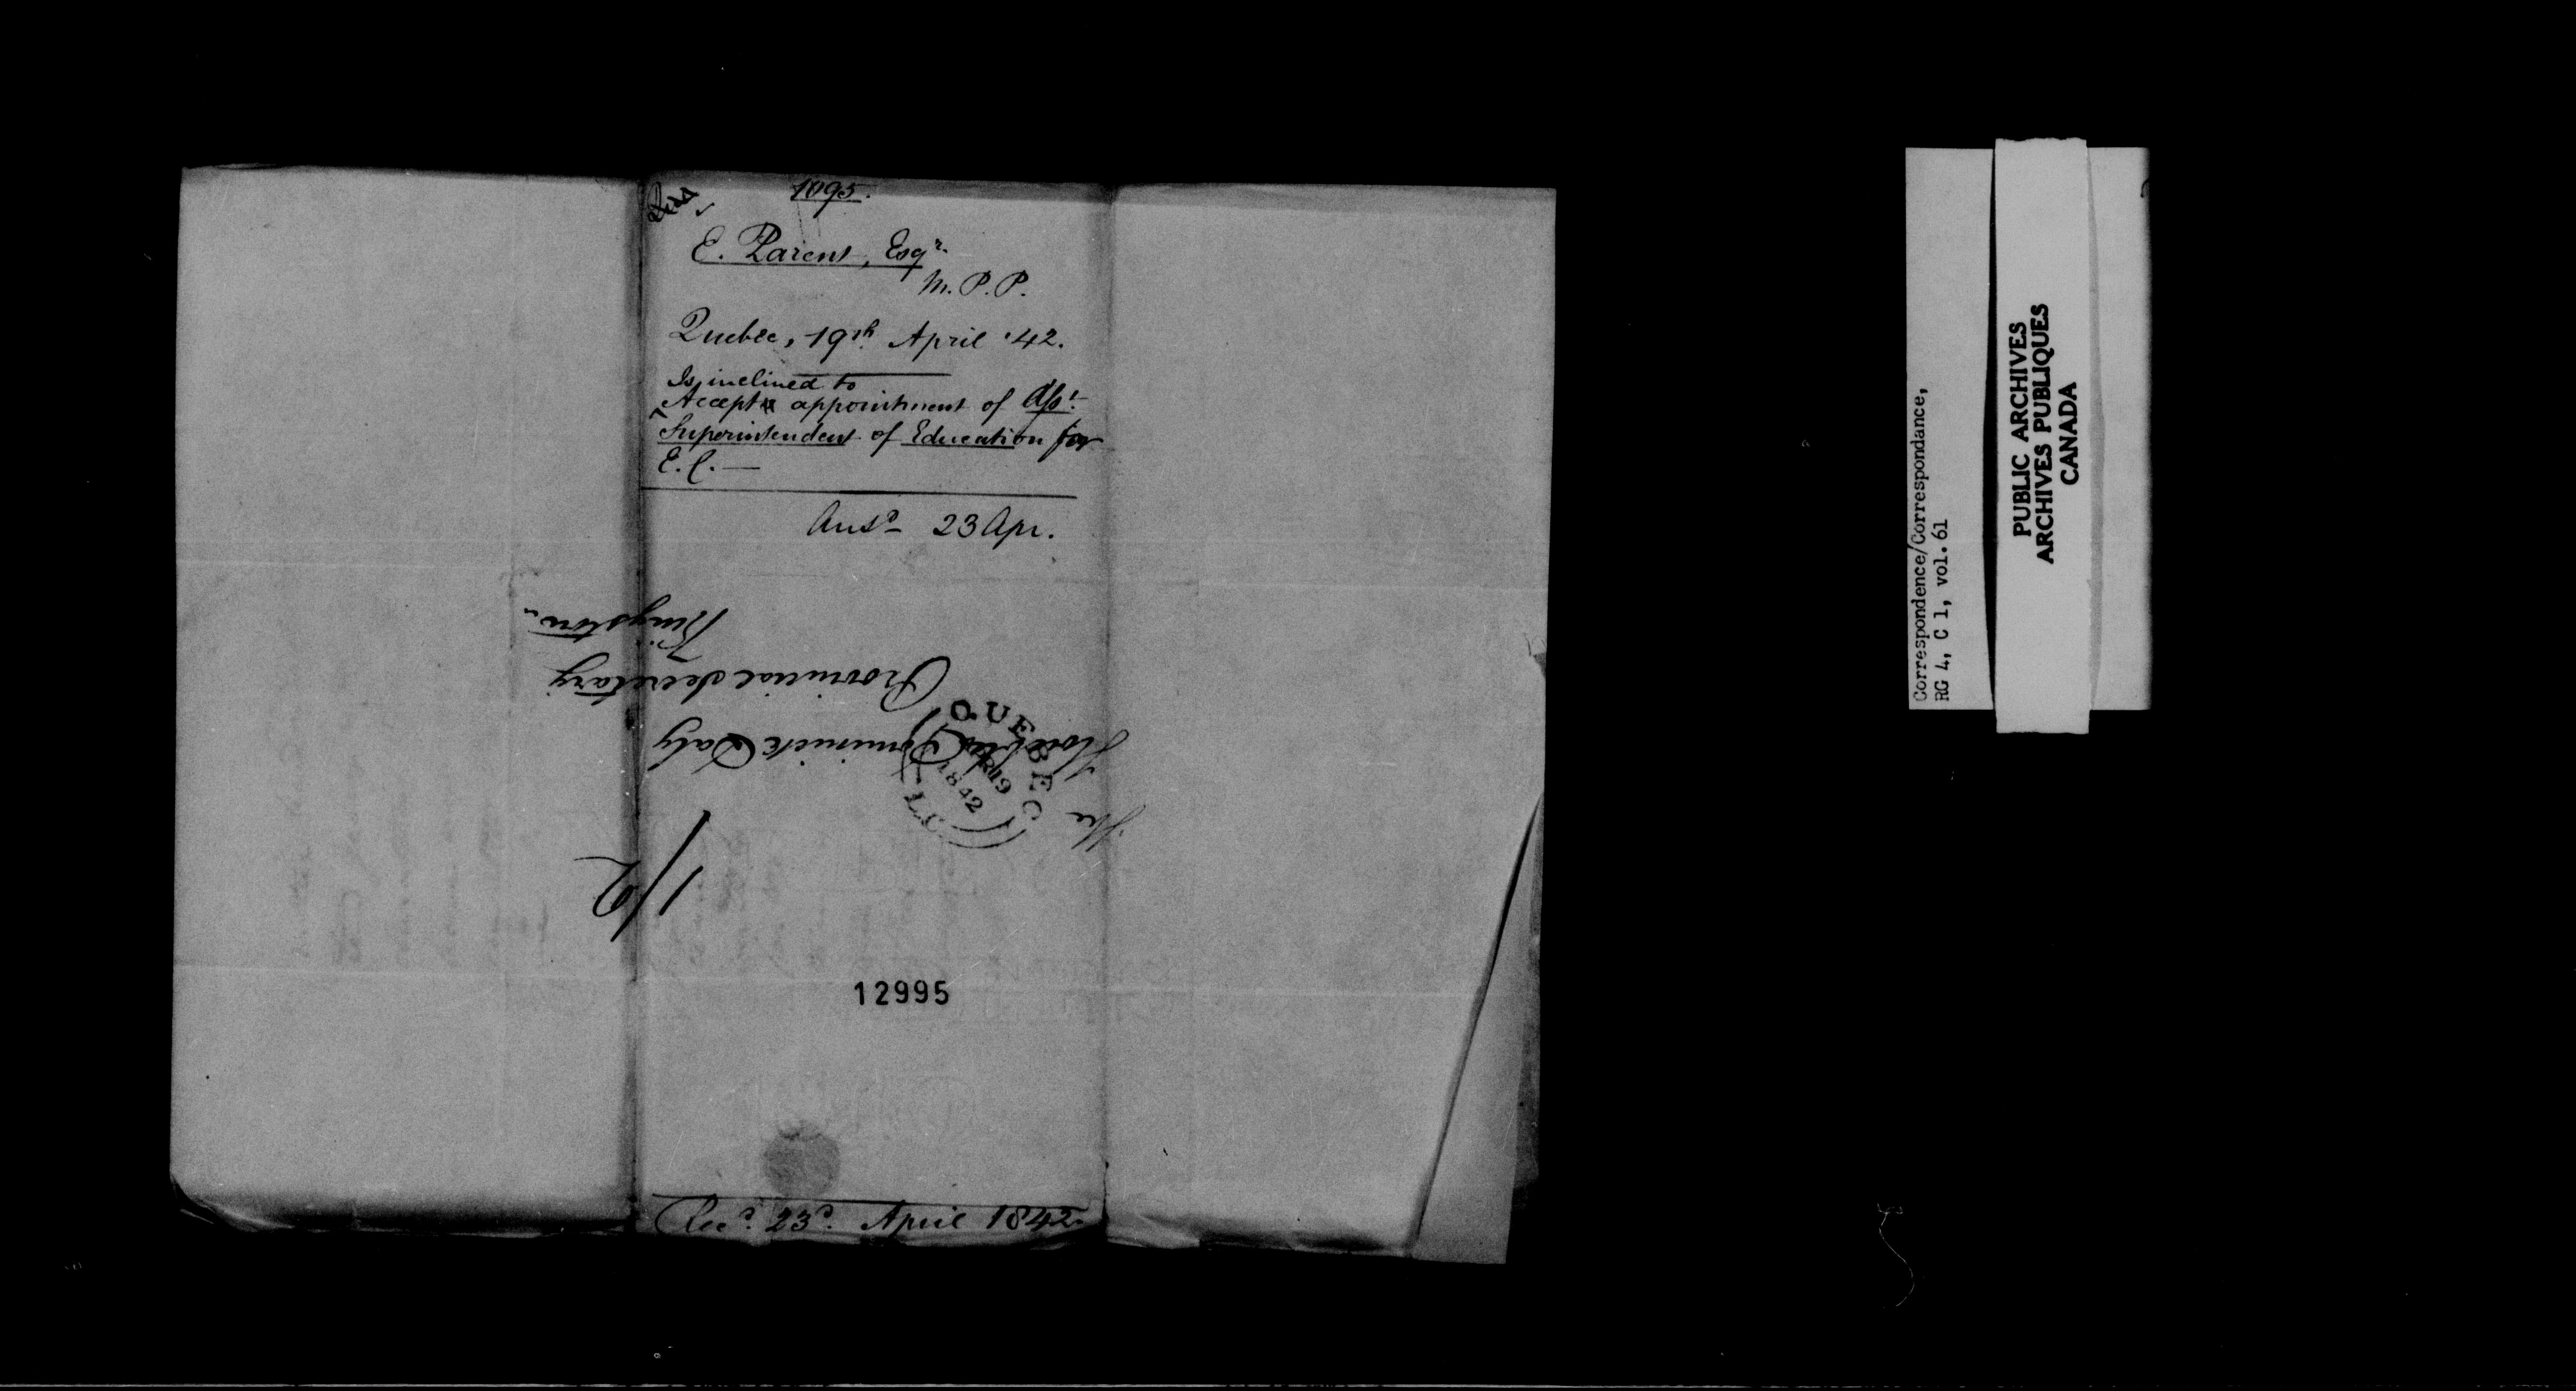 1095.
E. Parent, Esqr.
M. P. P.
Quebec, 19th April '42.
Is inclined to
Accept appointment of Asst.
Superintendent of Education for
E. C. —
Ansd 23 Apr.
The
Honble Dominick Daly
Provincial Secretary
Kingston
QUEBEC
1842
1/2
12995
Recd. 23d. April 1842
Correspondence/Correspondance,
RG 4, C 1, vol. 61
PUBLIC ARCHIVES
ARCHIVES PUBLIQUES
CANADA